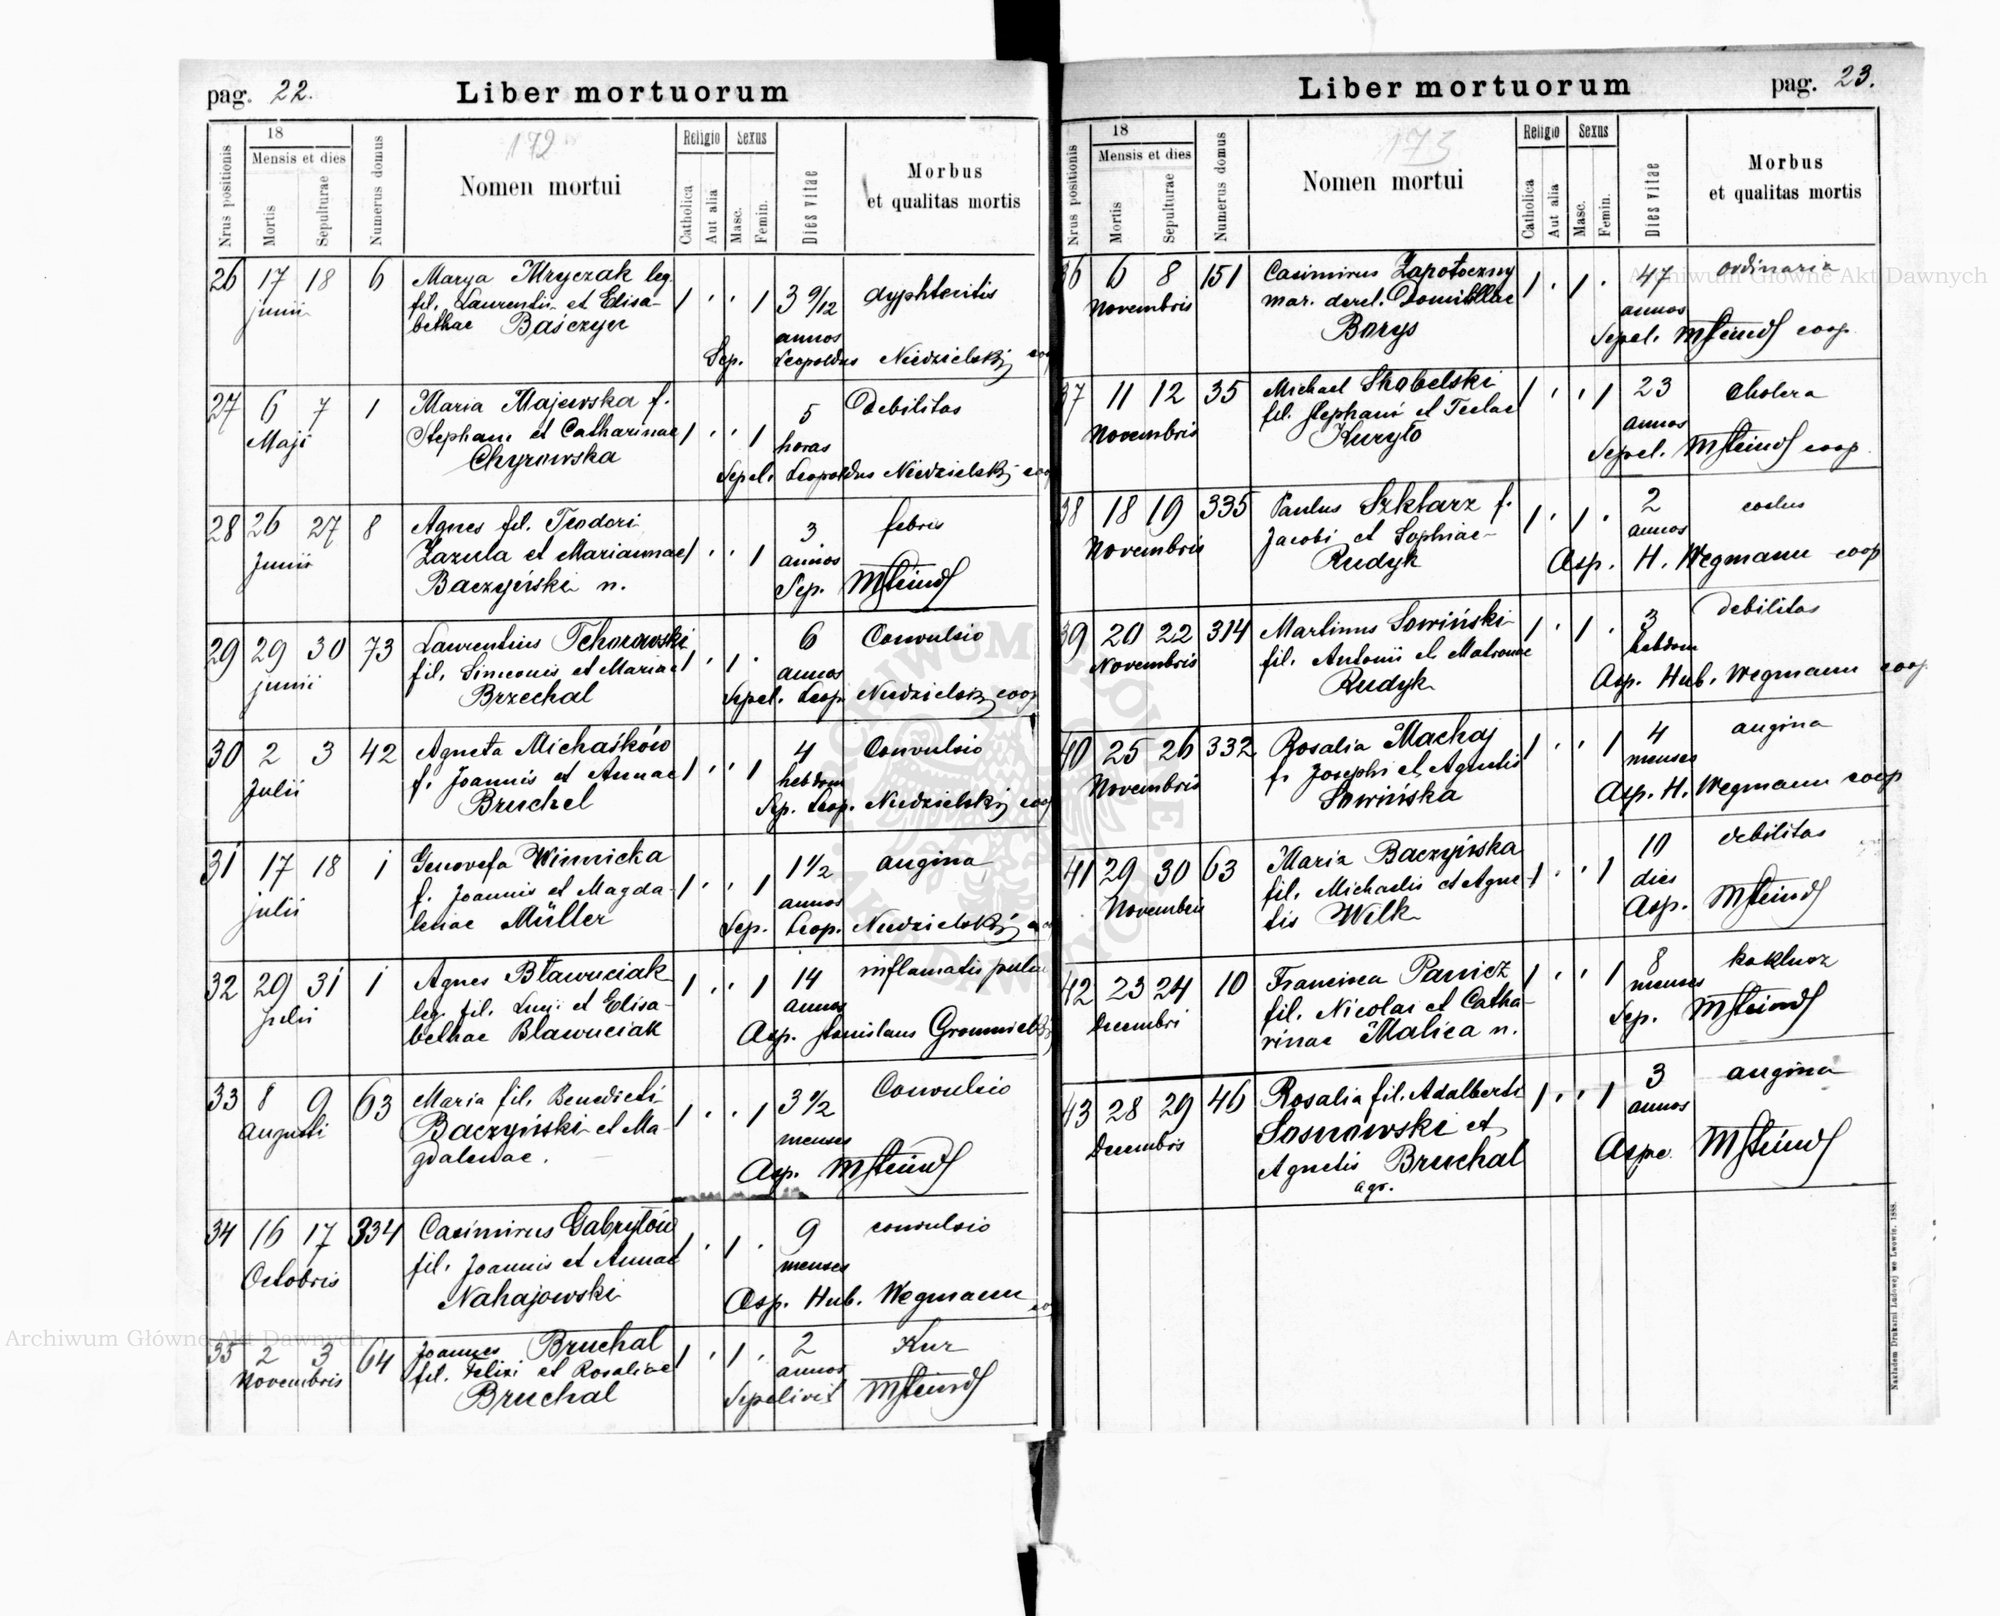 pag. 22.
Liber mortuorum
Nrus positionis
18
Mensis et dies
Mortis
Sepulturae
Numerus domus
172
Nomen mortui
Religio
Catholica
Aut alia
Sexus
Masc.
Femin.
Dies vitae
Morbus
et qualitas mortis
26 17 18 6 Marya Mryczak leg. dyphteritis
junii fil. Laurentii et Elisa- 1 · · 1 3 9/12
bethae Baśczyn annos
Sep. Leopoldus Niedzielski
27 6 7 1 Maria Majewska f. 5 Debilitas
Maji Stephani et Catharinae 1 · · 1 horas
Chyrowska
Sepel. Leopoldus Niedzielski coop
28 26 27 8 Agnes fil. Teodori 3 febris
Junii Zazula et Mariannae 1 · · 1 annos
Baczyński n. Sep. MSteindl
29 29 30 73 Laurentius Tchorowski 6 Convulsio
junii fil. Simeonis et Mariae 1 · 1 · annos
Brzechal Sepel. Leop. Niedzielski coop
30 2 3 42 Agneta Michaśków 4 Convulsio
Julii f. Joannis et Annae 1 · · 1 hebdom
Bruchel Sep. Leop. Niedzielski coop
31 17 18 1 Genovefa Winnicka 1 1/2 angina
julii f. Joannis et Magda- 1 · · 1 annos
lenae Müller Sep. Leop. Niedzielski
32 29 31 1 Agnes Bławuciak 1 · · 1 14 inflamatis pulm
Julii leg. fil. et Elisa- annos
bethae Blawuciak Asp. Stanislaus
33 8 9 63 Maria fil. Benedicti 3 1/2 Convulsio
Augusti Baczyński et Ma- 1 · · 1 menses
gdalenae. Asp. MSteindl
34 16 17 334 Casimirus Gabrylów 1 · 1 · 9 convulsio
Octobris fil. Joannis et Annae menses
Nahajowski Asp. Hub. Wegmann
35 2 3 64 Joannes Bruchal 1 · 1 · 2 Kur
Novembris fil. Felixi et Rosaliae annos
Bruchal Sepelivit MSteindl
Liber mortuorum
pag. 23.
Nrus positionis
18
Mensis et dies
Mortis
Sepulturae
Numerus domus
173
Nomen mortui
Religio
Catholica
Aut alia
Sexus
Masc.
Femin.
Dies vitae
Morbus
et qualitas mortis
36 6 8 151 Casimirus Zapotoczny 1 · 1 · 47 ordinaria
Novembris mar. derel. Domitillae annos
Borys Sepel. MSteindl coop
37 11 12 35 Michael Skobelski 1 · · 1 23 Cholera
Novembris fil. Stephani et Teclae annos
Kuryło Sepel. MSteindl coop
38 18 19 335 Paulus Szklarz f. 1 · 1 · 2
Novembris Jacobi et Sophiae annos
Rudyk Asp. H. Wegmann coop
39 20 22 314 Martinus Sowiński 1 · 1 · 3 debilitas
Novembris fil. Antonii et Matronae hebdom
Rudyk Asp. Hub. Wegmann coop.
40 25 26 332 Rosalia Machaj 1 · · 1 4 angina
Novembris f. Josephi et Agnetis menses
Sowińska Asp. H. Wegmann coop
41 29 30 63 Maria Baczyńska 10 debilitas
Novembris fil. Michaelis et Agne- 1 · · 1 dies
tis Wilk Asp. MSteindl
42 23 24 10 Francisca Panicz 1 · · 1 8 kokluoz
Decembri fil. Nicolai et Catha- menses
rinae Malica n. Sep. MSteindl
43 28 29 46 Rosalia fil. Adalberti 1 · · 1 3 angina
Decembris Sosnowski et annos
Agnetis Bruchal Aspe. MSteindl
agr.
Nakładem Drukarni Ludowej we Lwowie. 1888.
Archiwum Główne Akt Dawnych
Archiwum Główne Akt Dawnych
ARCHIWUM GŁÓWNE AKT DAWNYCH